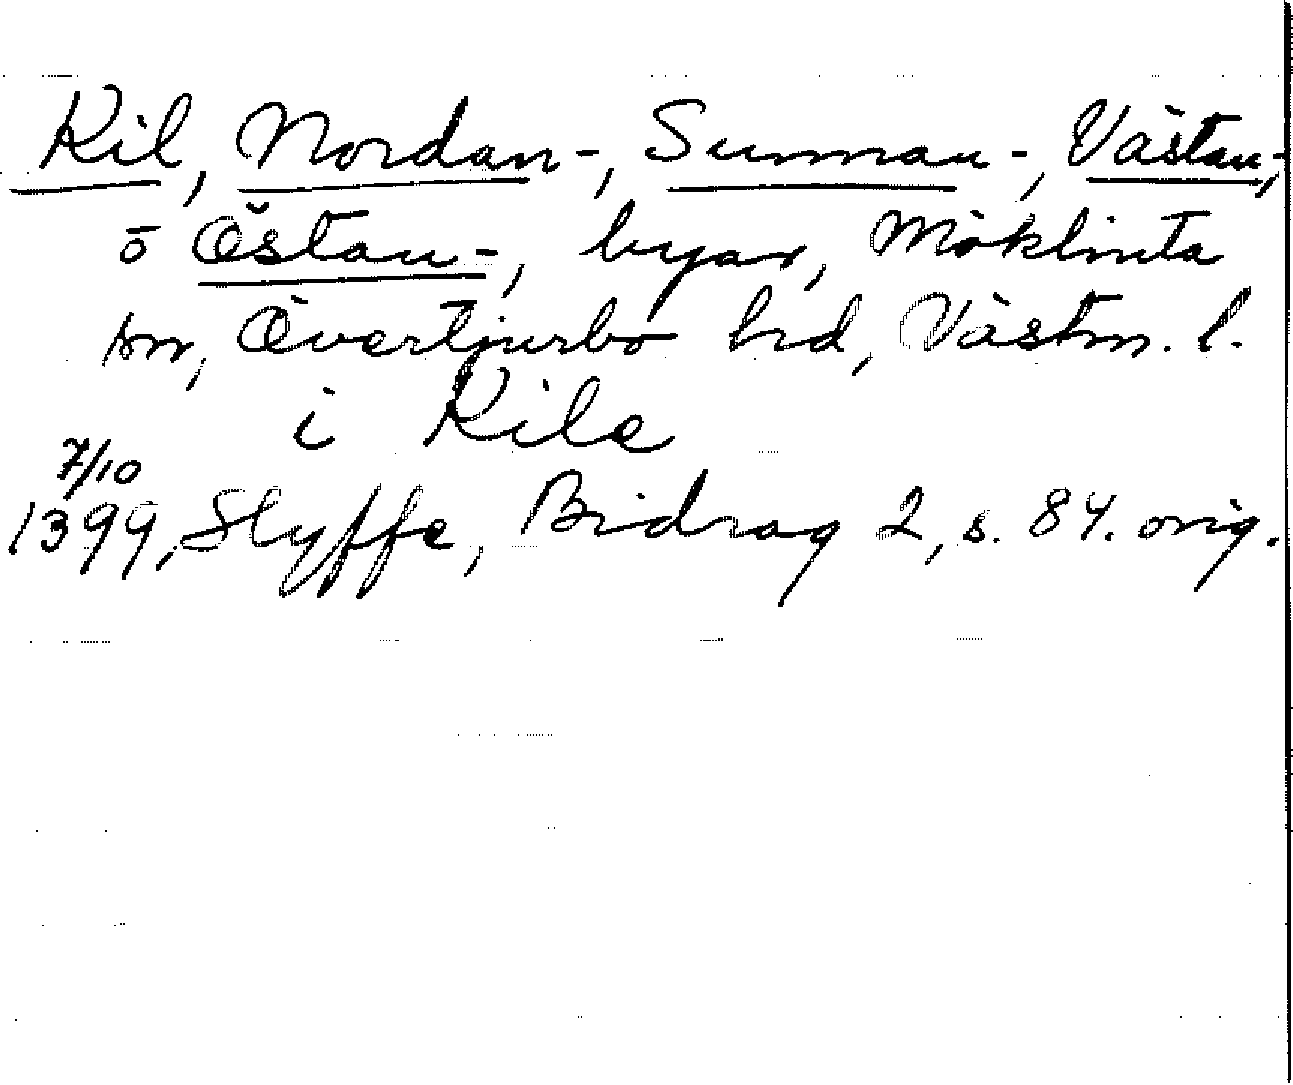 Kil, Nordan-, Sunnan-, Västan-,
o Östan-, byar, Möklinta
sn, Övertjurbo hrd, Västm. l.
i Kila
7/10
1399, Styffe, Bidrag 2, s. 84. orig.